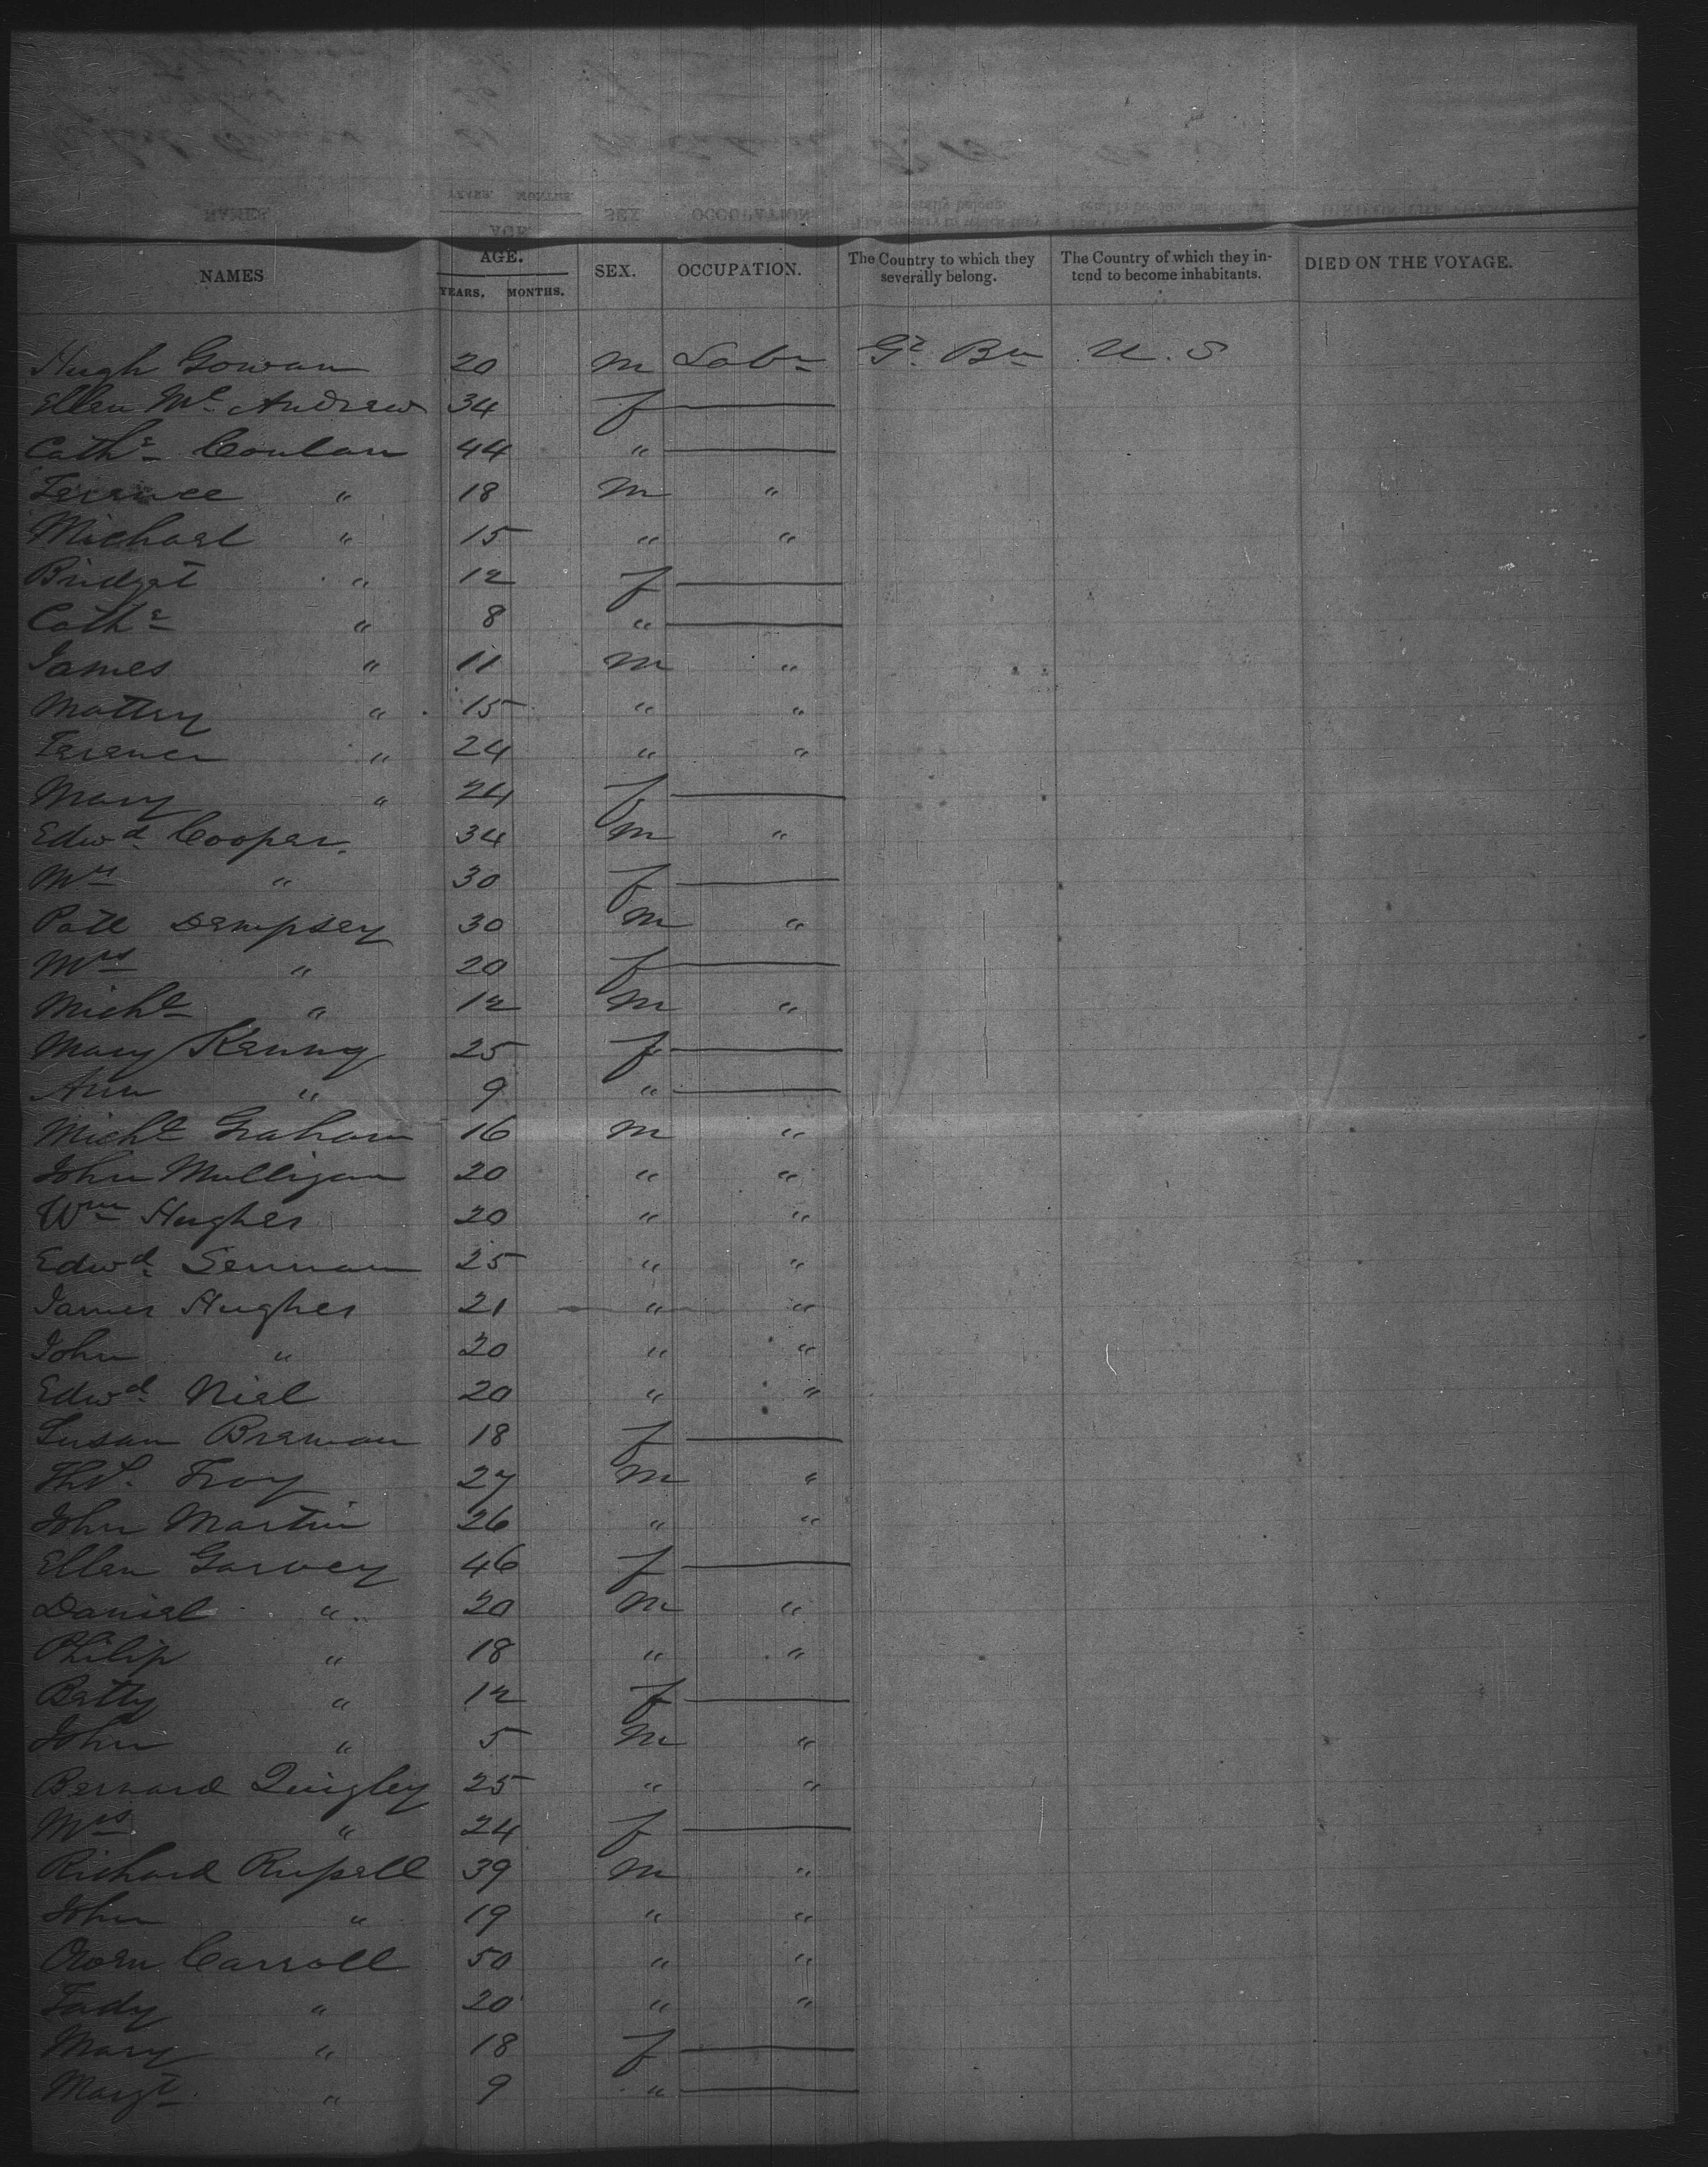 NAMES AGE. SEX. OCCUPATION. The Country to which they severally belong. The Country of which they intend to become inhabitants. DIED ON THE VOYAGE.
YEARS. MONTHS.
Hugh Gowan 20 m Labr Gt. Bn U. S
Ellen Mc Andrew 34 f —
Cathe Conlan 44 " —
Terence " 18 m "
Michael " 15 " "
Bridget " 12 f —
Cathe " 8 " —
James " 11 m "
Mattey " 15 " "
Terence " 24 " "
Mary " 24 f —
Edwd Cooper 34 m "
Mrs " 30 f —
Patk Dempsey 30 m "
Mrs " 20 f —
Michl " 12 m "
Mary Kenny 25 f —
Ann " 9 " —
Michl Graham 16 m "
John Mulligan 20 " "
Wm Hughes 20 " "
Edwd 25 " "
James Hughes 21 " "
John " 20 " "
Edwd Niel 20 " "
Susan Brennan 18 f —
Ths. Troy 27 m "
John Martin 26 " "
Ellen Garvey 46 f —
Daniel " 20 m "
Philip " 18 " "
Betty " 12 f —
John " 5 m "
Bernard Quigley 25 " "
Mrs " 24 f —
Richard Russell 39 m "
John " 19 " "
Owen Carroll 50 " "
Tady " 20 " "
Mary " 18 f —
Margt " 9 " —